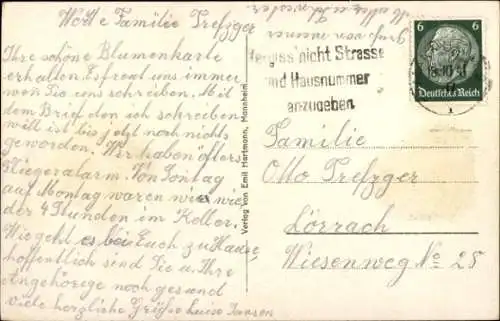 Werte Familie Trefzger
Ihre schöne Blumenkarte
erhalten. Es freut uns immer
wen Sie uns schreiben. Mit
dem Brief den ich schreiben
will ist bis jetzt noch nichts
geworden. Wir haben öfters
Fliegeralarm. Von Sonntag
auf Montag waren wir wie
der 4 Stunden im Keller.
Wie geht es bei Euch zu Hause,
hoffentlich sind Sie u. Ihre
Angehörige noch gesund
viele herzliche Grüße Luise Jansen
Verlag von Emil Hartmann, Mannheim
Vergiss nicht Strasse
und Hausnummer
anzugeben
6 6
Deutsches Reich
Familie
Otto Trefzger
Lörrach
Wiesenweg No 28